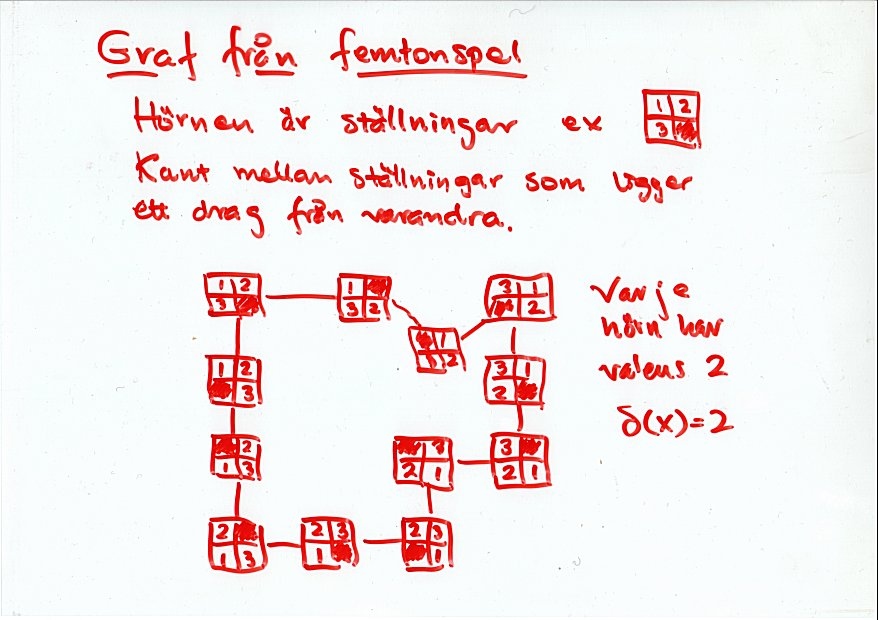 Graf från femtonspel
Hörnen är ställningar ex
1 2
3
Kant mellan ställningar som ligger
ett drag från varandra.
1 2
3
1
3 2
1
3 2
3 1
2
Varje
hörn har
valens 2
δ(x)=2
1 2
3
3 1
2
2
1 3
3
2 1
3
2 1
2
1 3
2 3
1
2 3
1